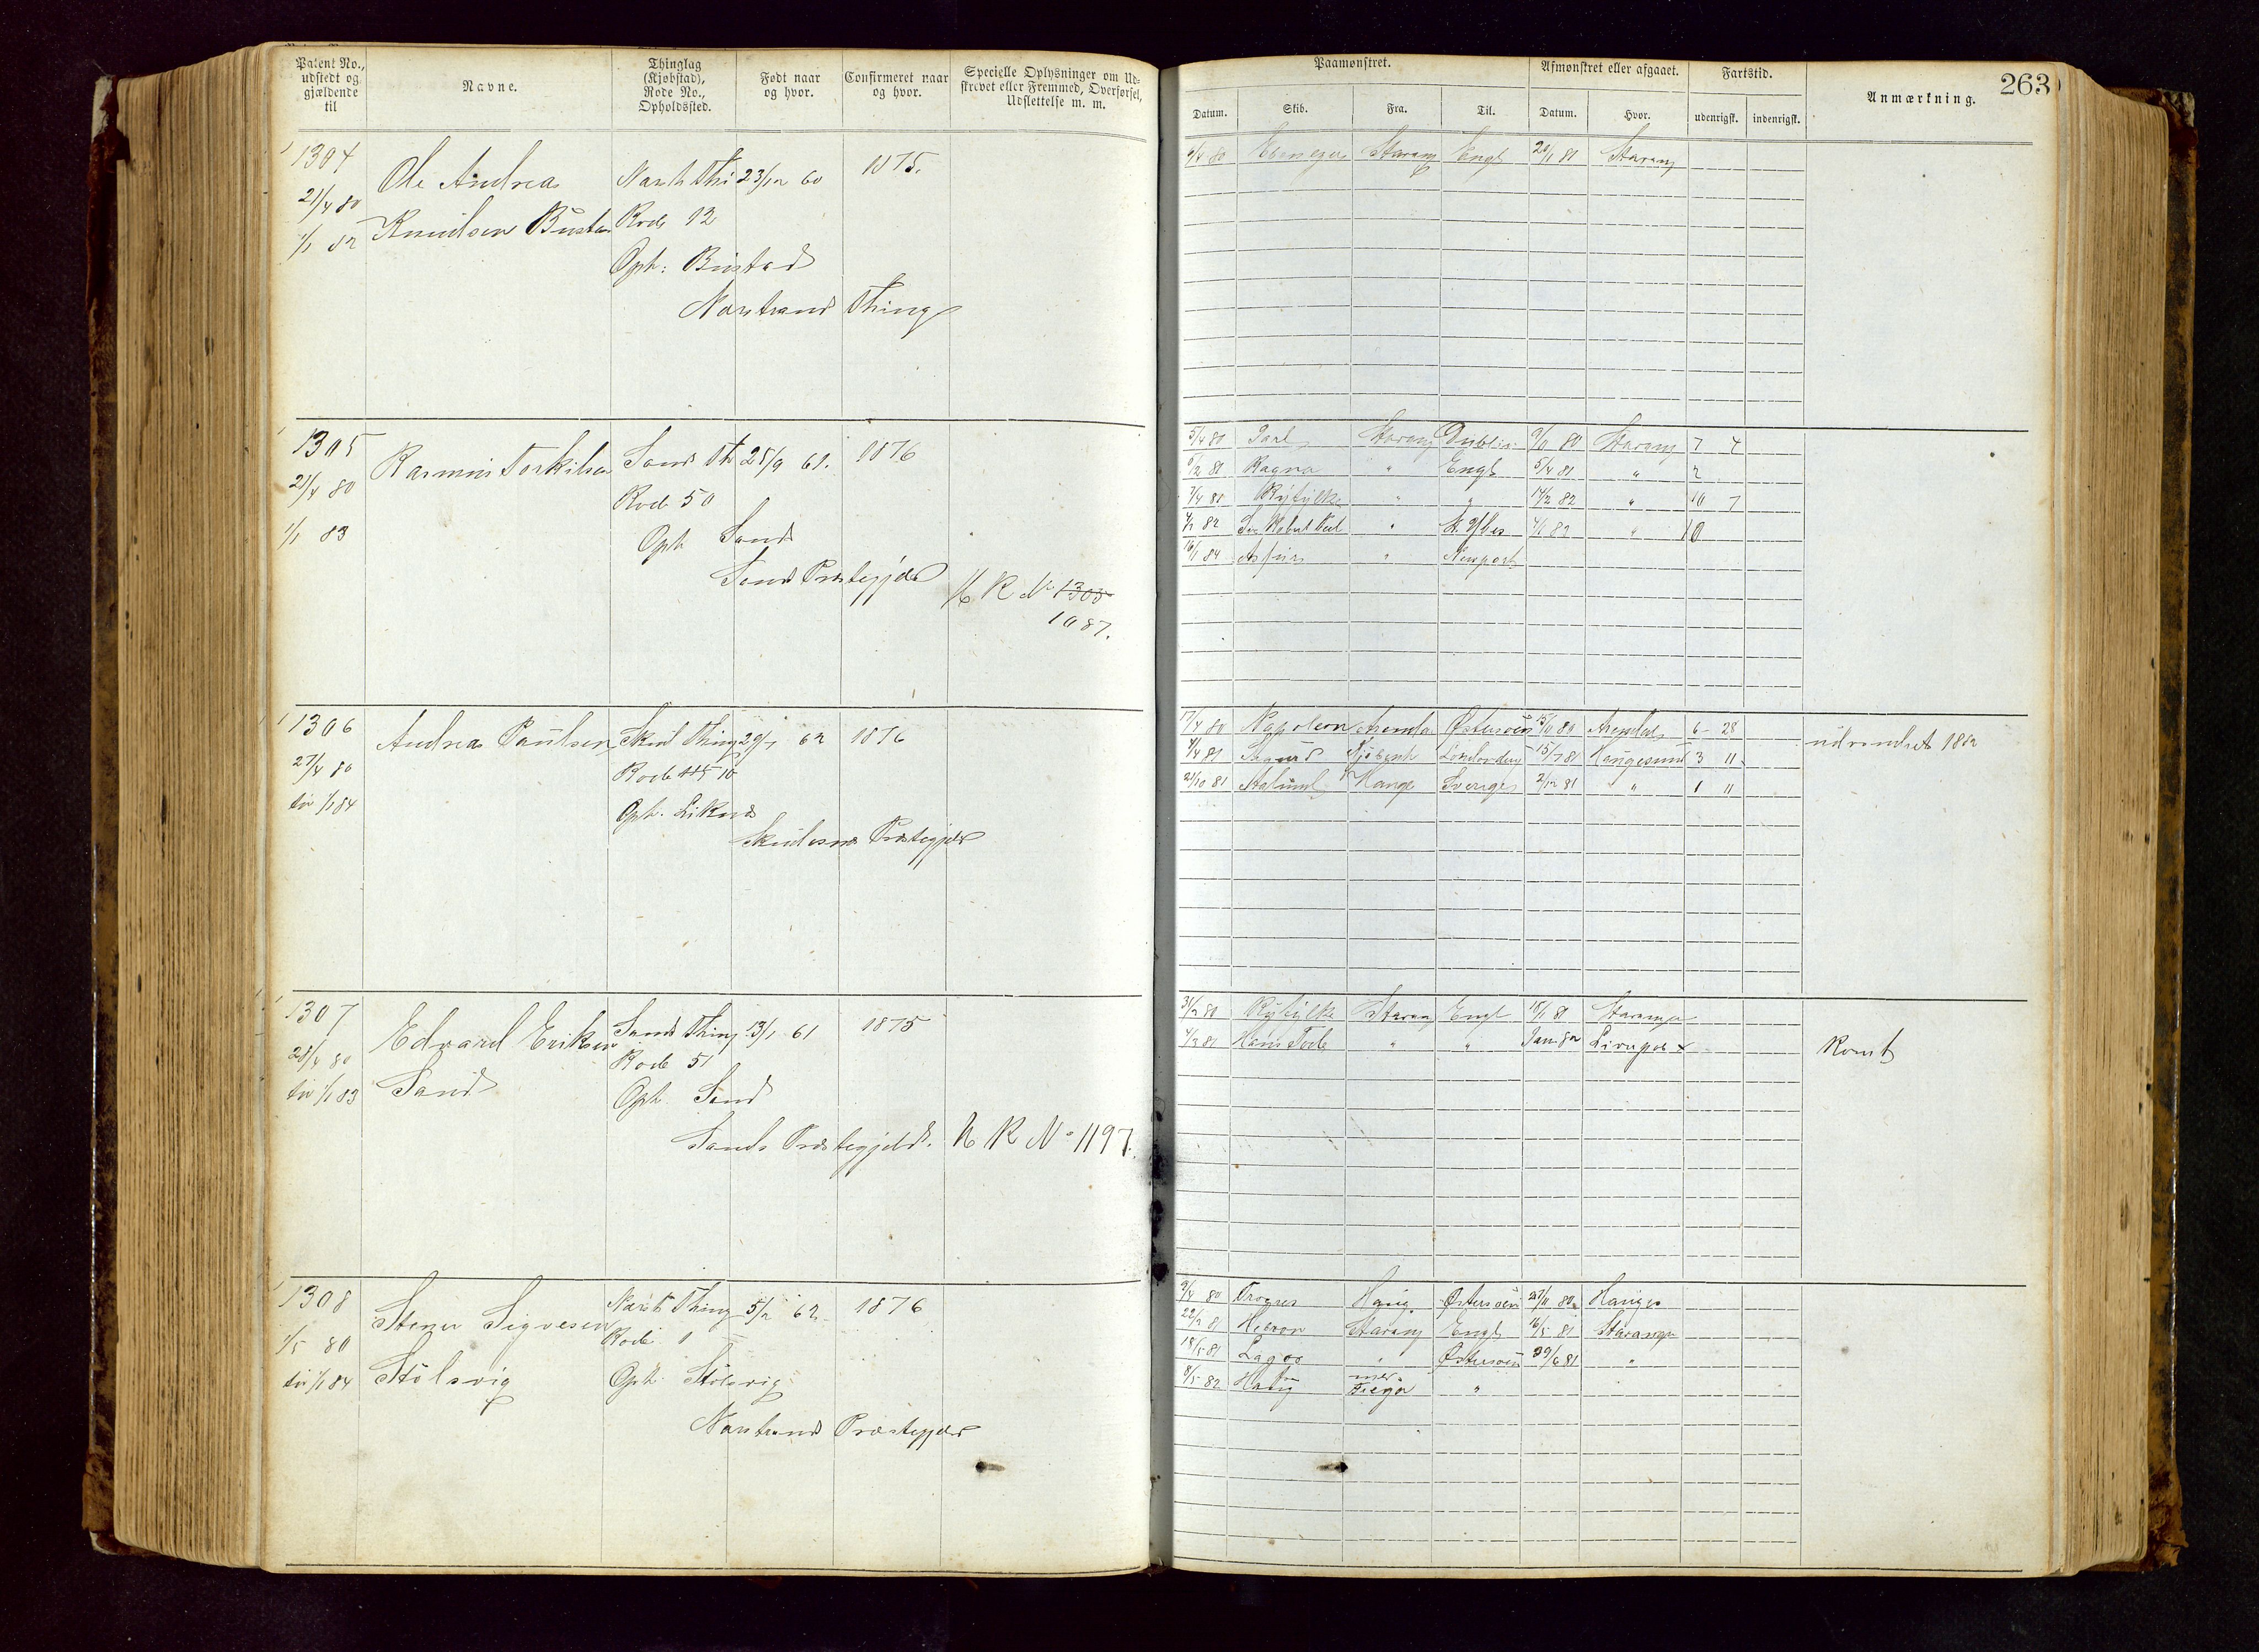 Patent No.,
udstedt og
gjældende
til
Navne.
Thinglag
(Kjøbstad),
Rode No.,
Opholdssted.
Født naar
og hvor.
Confirmeret naar
og hvor.
Specielle Oplysninger om Ud-
skrevet eller Fremmed, Overførsel,
Udslettelse m. m.
1304
21/4 80
1/1 82
Ole Andreas
Knudsen Bustad
Narst Thi 23/12 60 1875.
Rode 12
Oph: Bustad
Narstrand Thing
1305
21/4 80
1/1 83
Rasmus Torkilsen
Sand Th 25/9 61. 1876
Rode 50
Oph Sand
Sand Præstegjeld
H R No 1305
1087.
1306
27/4 80
til 1/1 84
Andreas Paulsen
Skud Thing 29/1 62 1876
Rode 115 10
Oph.
Skudesnes Præstegjeld
1307
28/4 80
til 1/1 83
Edvard Eriksen
Sand
Sands Thing 13/1 61 1875
Rode 51
Oph. Sand
Sands Præstegjeld. H R No 1197.
1308
1/5 80
til 1/1 84
Stener Sigvesen
Stølsvig
Narst Thing 5/2 62 1876
Rode 1
Oph: Stølsvig
Narstrand Præstegjeld
263
Paamønstret.
Afmønstret eller afgaaet.
Fartstid.
Anmærkning.
Datum.
Skib.
Fra.
Til.
Datum.
Hvor.
udenrigsk.
indenrigsk.
9/4 80 Ebenezer Stavang Engl 20/1 81 Stavang
5/4 80 Jarl Stavang Dublin 9/11 80 Stavang 7 4
5/2 81 Ragna " Engl 5/4 81 " 2
7/4 81 Ryfylke " " 14/2 82 " 10 7
4/2 82 Sir Robert Peel " 4/1 83 " 10
16/1 84 " Newport
17/4 80 Napoleon Arendal Østersøen 15/11 80 Arendal 6 28
4/4 81 Sigurd Londondery 15/7 81 Haugesund 3 11
21/10 81 Hauge Sverige 2/12 81 " 1 11
udvandret 1882
31/3 80 Ryfylke Stavang Engl 18/1 81 Stavanger
4/3 81 Hans Tode " " Jan 82 Liverpol
Rømt
9/4 80 Haug. Østersøen 27/11 80 Hauges
22/2 81 Hebron Stavang Engl 16/5 81 Stavanger
18/5 81 Lagos " Østersøen 29/6 81 "
8/5 82 Haug "